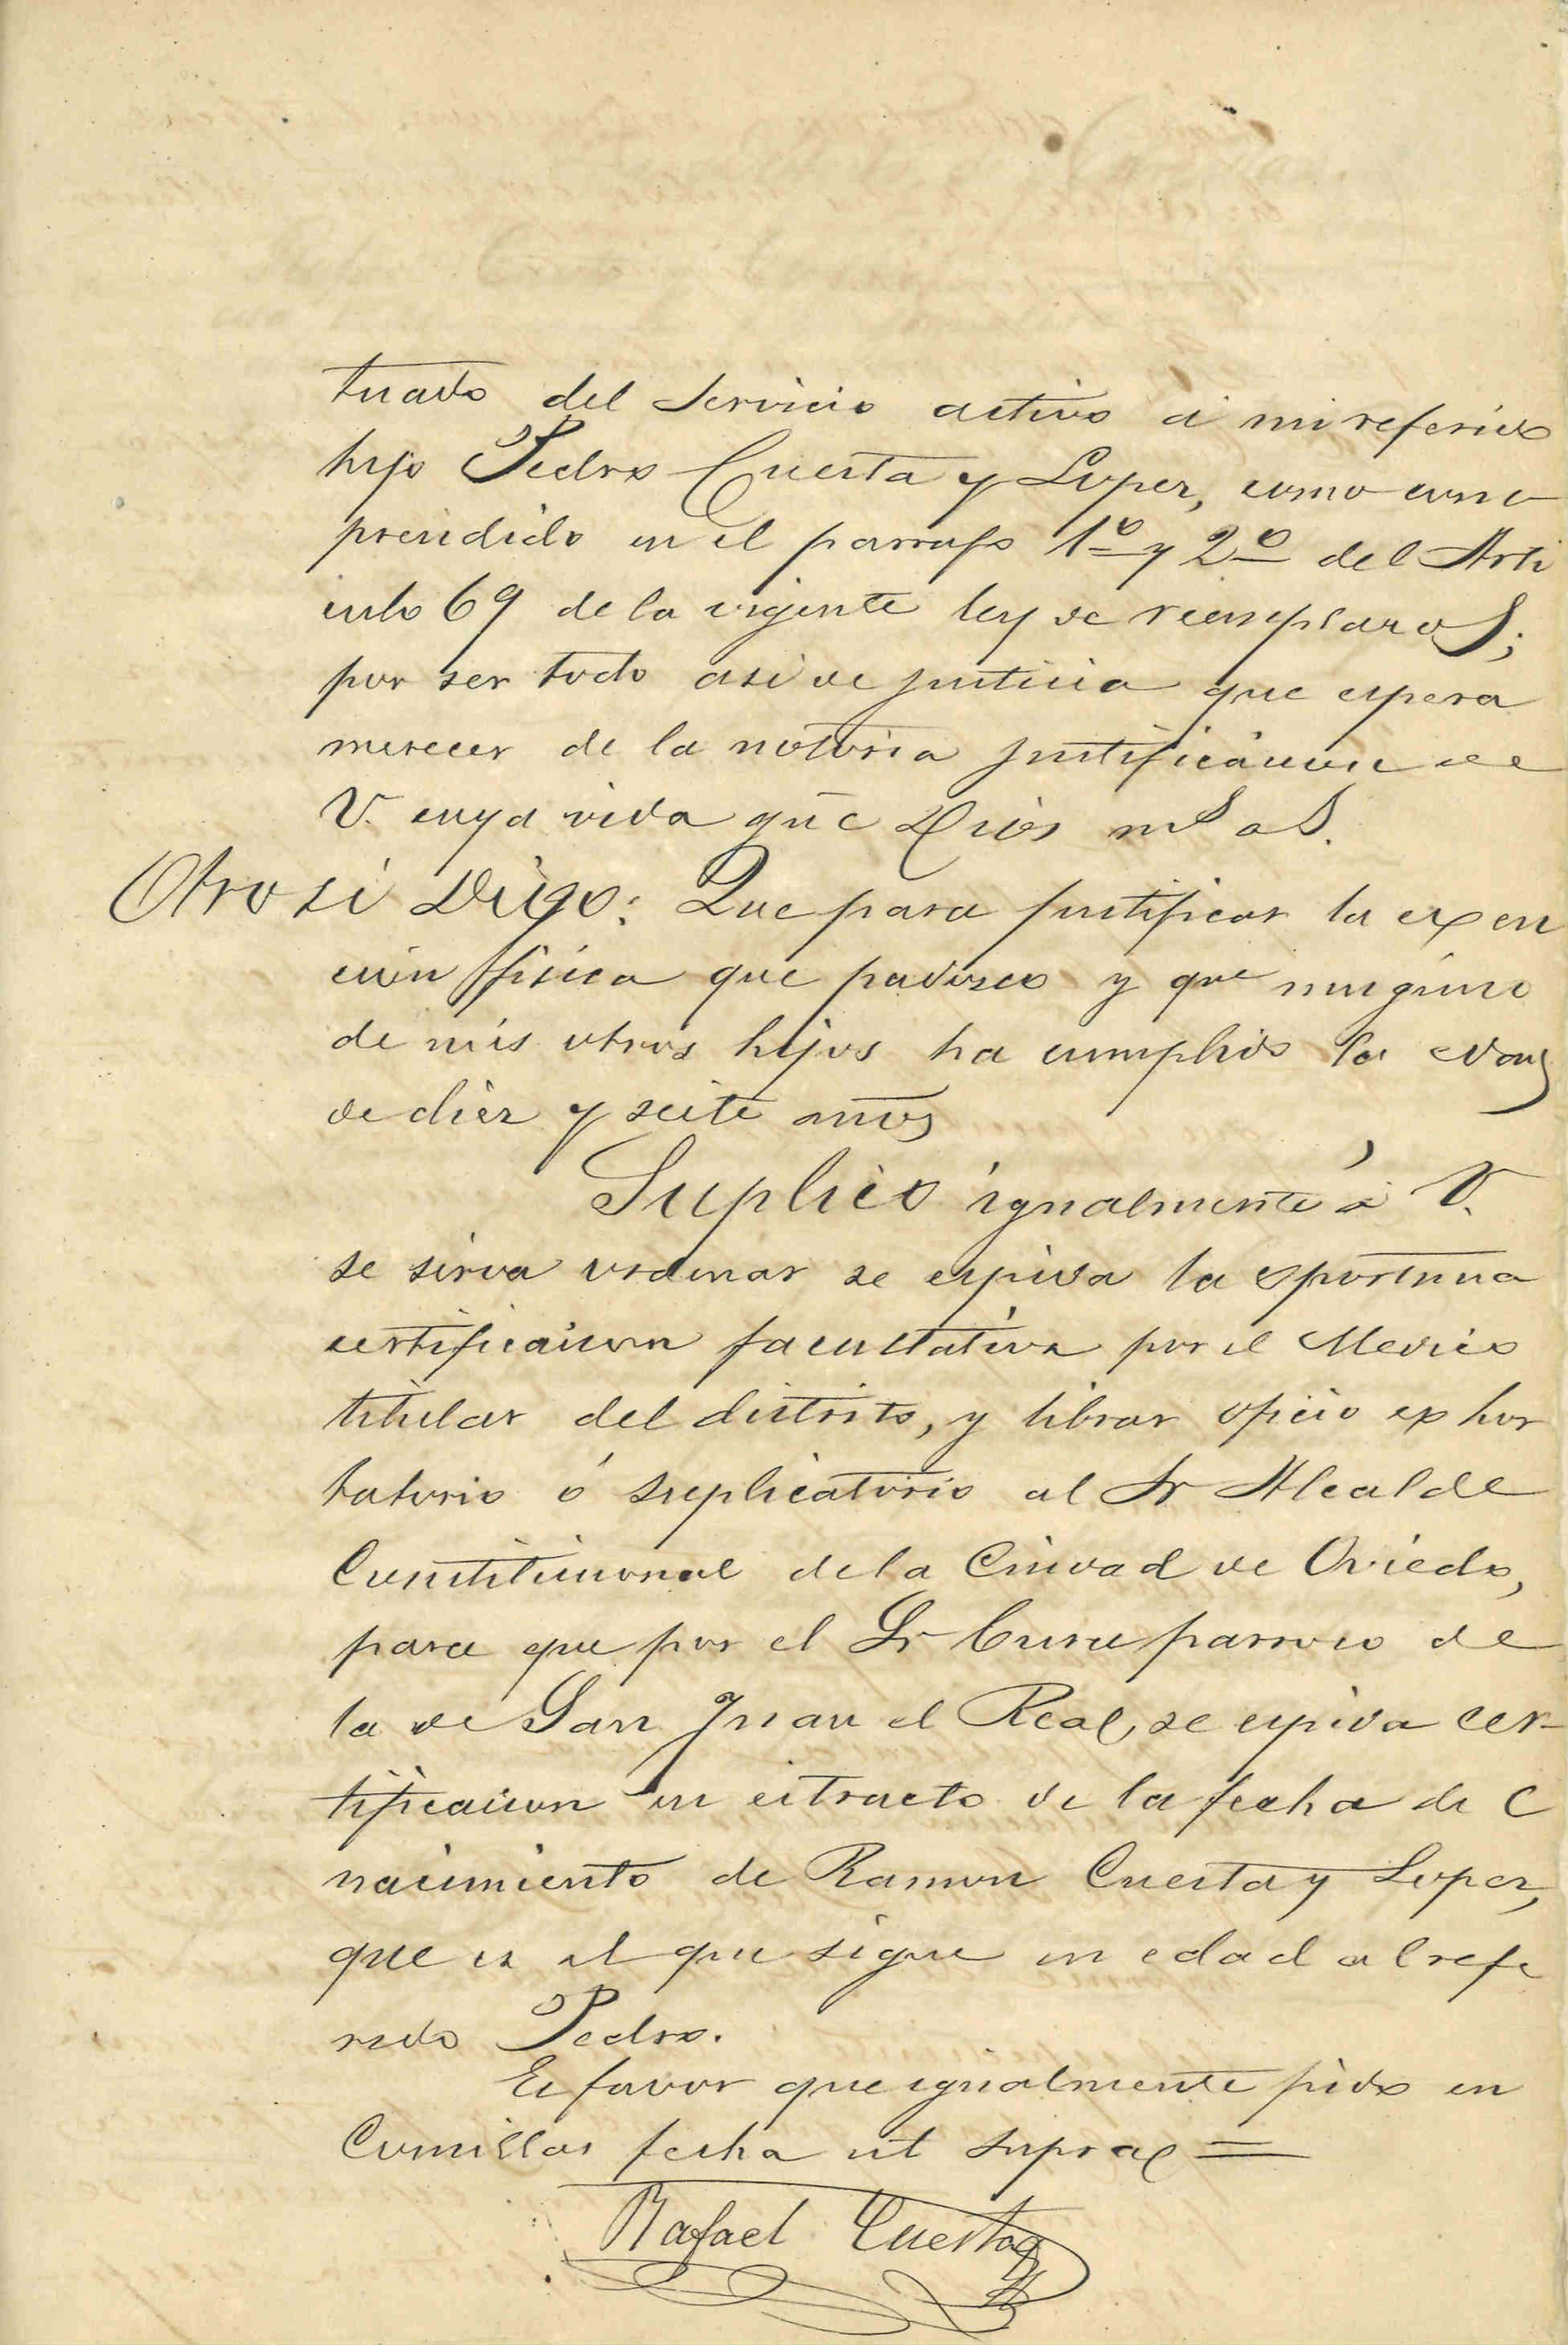 tuado del Servicio activo á mi referido
hijo Pedro Cuesta y Lopez, como com-
prendido en el parrafo 1º y 2º del Arti
culo 69 de la vigente ley de reemplazos;
por ser todo asi de justicia que espera
merecer de la notoria justificacion de
V. cuya vida gūe Dios mˢ aˢ.
Otro si Digo: Que para justificar la exen
cion fisica que padezco y que ninguno
de mis otros hijos ha cumplido la edad
de diez y seite años
Suplico igualmente á V.
se sirva ordenar se espida la oportuna
certificacion facultativa por el Medico
titular del distrito, y librar oficio exhor
tatorio ó suplicatorio al Sr Alcalde
Constitucional de la Ciudad de Oviedo,
para que por el Sr Cura parroco de
la de San Juan el Real, se espida cer-
tificacion en estracto de la fecha de
nacimiento de Ramon Cuesta y Lopez,
que es el que sigue en edad al refe
rido Pedro.
Es favor que igualmente pido en
Comillas fecha ut supra =
Rafael Cuesta